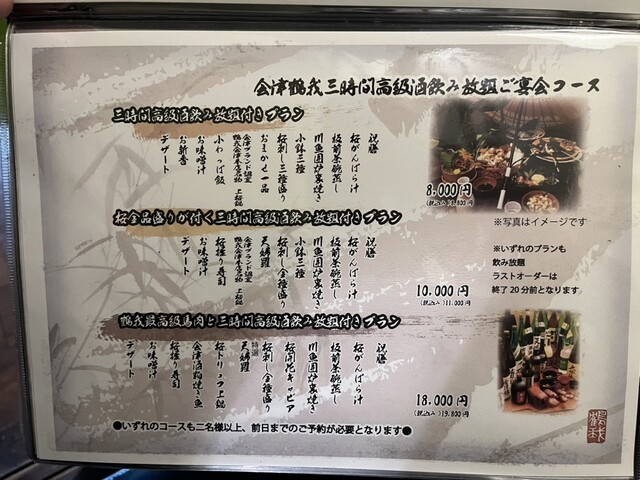 会津鶴我三時間高級酒飲み放題ご宴会コース
三時間高級酒飲み放題付きプラン
祝膳
桜がんばら汁
板前茶碗蒸し
川魚囲炉裏焼き
小鉢三種
桜刺し三種盛り
おまかせ一品
会津ブランド認定
鶴我会津本店名物 上桜鍋
小わっぱ飯
お味噌汁
お新香
デザート
8,000円
(税込み)8,800円
桜全品盛りが付く三時間高級酒飲み放題付きプラン
祝膳
桜がんばら汁
板前茶碗蒸し
川魚囲炉裏焼き
小鉢三種
桜刺し全種盛り
天婦羅
会津ブランド認定
鶴我会津本店名物 上桜鍋
桜握り寿司
お味噌汁
デザート
10,000円
(税込み)11,000円
鶴我最高級馬肉と三時間高級酒飲み放題付きプラン
祝膳
桜がんばら汁
板前茶碗蒸し
川魚囲炉裏焼き
桜開花キャビア
特選
桜刺し全種盛り
天婦羅
桜トリュフ上鍋
会津酒粕焼き魚
桜握り寿司
お味噌汁
デザート
18,000円
(税込み)19,800円
※写真はイメージです
※いずれのプランも
飲み放題
ラストオーダーは
終了20分前となります
●いずれのコースも二名様以上、前日までのご予約が必要となります●
鶴我